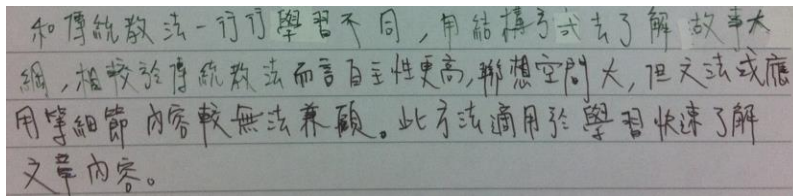 和傳統教法一行行學習不同,用結構方式去了解故事大
綱,相較於傳統教法而言自主性更高,聯想空間大,但文法或應
用等細節內容較無法兼顧。此方法適用於學習快速了解
文章內容。